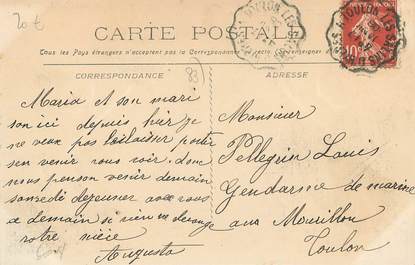 20 t
CARTE POSTALE
Tous les Pays étrangers n'acceptent pas la Correspondance
CORRESPONDANCE
83
ADRESSE
Maria et son mari
son ici depuis hier je
ne veux pas laisser partir
sen venir vous voir. donc
nous penson venir demain
samedi dejeuner avec vous
a demain si rien ne derange
votre nièce
Augusta
Monsieur
Pellegrin Louis
Gendarme de marine
aux Mourillon
Toulon